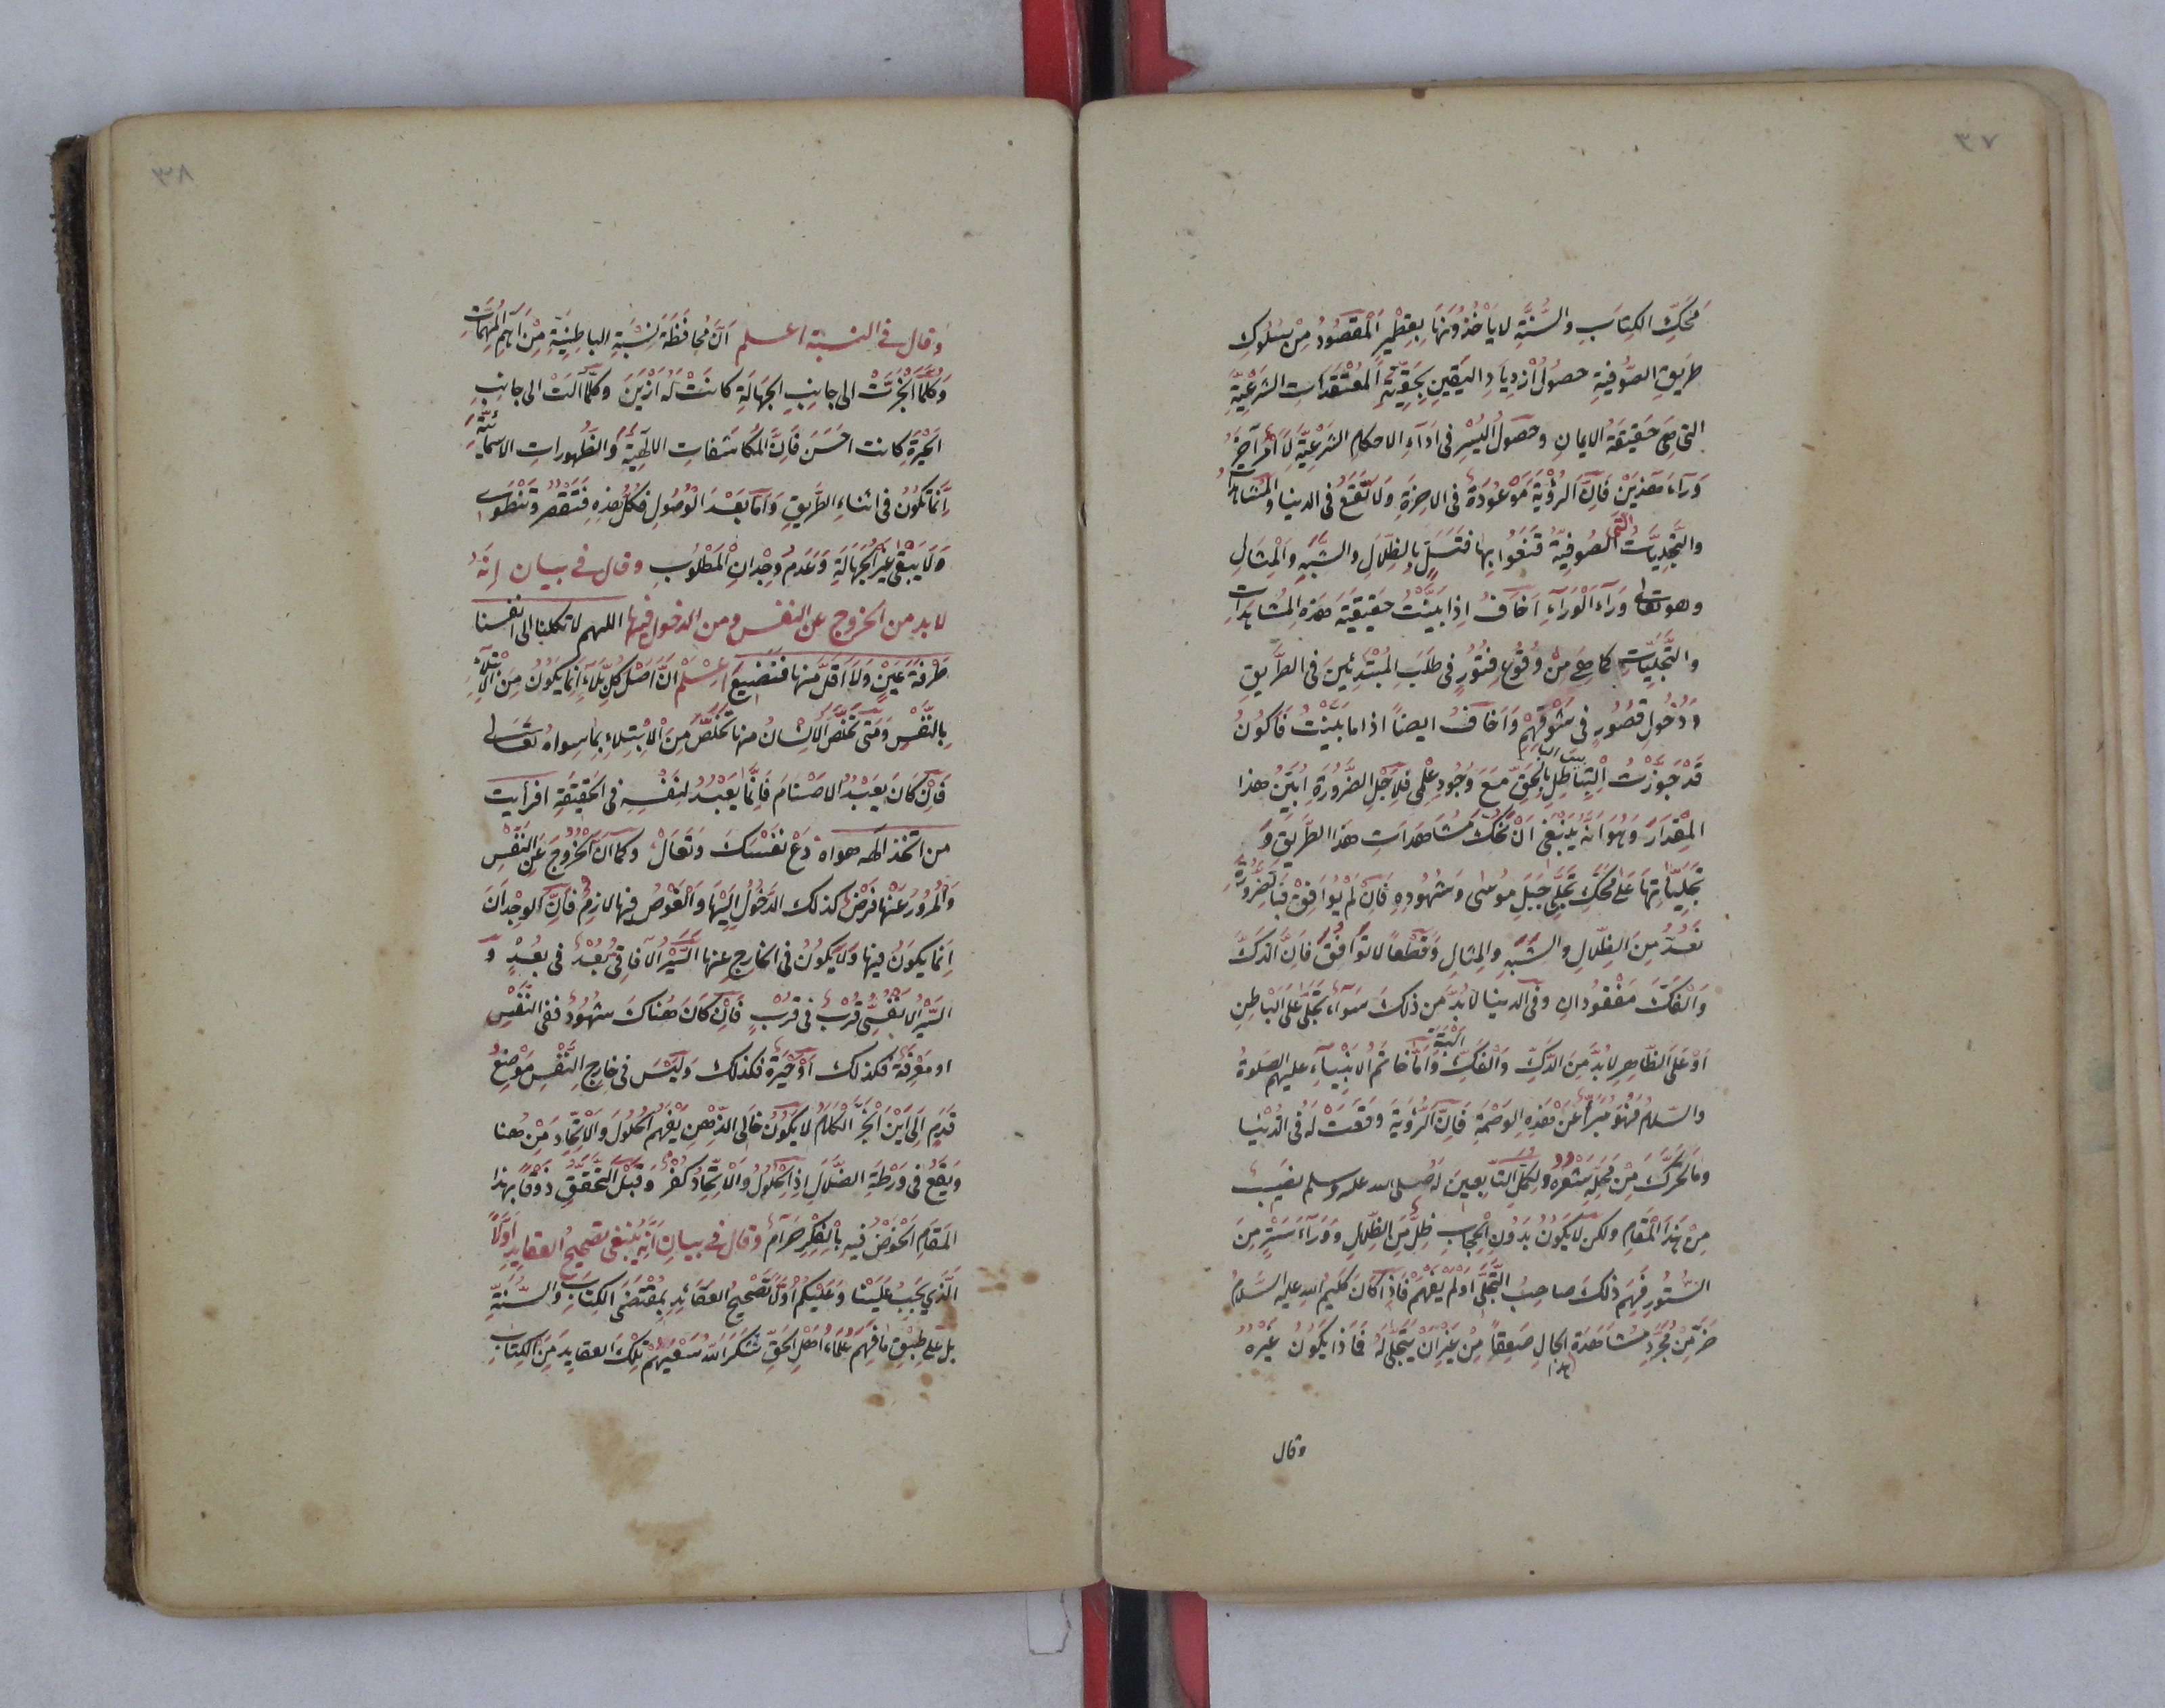 ٣٧
مَحَكِّ الكِتَابِ والسُّنَّةِ لا يَأْخُذُونَهَا بِقِطْمِيرٍ اَلْمَقْصُودُ مِنْ سُلُوكِ
طَرِيقِ الصُّوفِيَّةِ حصُولُ ازْدِيَادِ اليَقِينِ بِحَقِّيَّةِ الْمُعْتَقَدَاتِ الشَّرْعِيَّةِ
التي هِيَ حَقِيقَةُ الايمانِ وحصُولُ اليُسْرِ فى اَدَاءِ الاحكامِ الشَّرْعِيَّةِ لَا اَمْرٌ آخَرُ
وَرَاءَ هَذَيْنِ فَاِنَّ الرُّؤْيَةَ مَوْعُودَةٌ فى الاخِرَةِ وَلَا تَقَعُ فى الدينا والمُشَاهَدَاتُ
والتَّجَلِّيَاتُ الَّتِى الصُوفِيَّةُ قَنَعُوا بِهَا فَتَسَلٍّ بِالظِّلَالِ والشَّبَهِ والْمِثَالِ
وهو تعالى وَرَاءَ الْوَرَاءِ اَخَافُ اِذَا بَيَّنْتُ حَقِيقَةَ هَذِهِ المُشَاهَدَاتِ
والتَّجَلِّيَاتِ كما هِيَ مِنْ وُقُوعِ فُتُورٍ فى طَلَبِ المُبْتَدِئِينَ فى الطَّرِيقِ
وَدُخُولِ قُصُورٍ فى شَوْقِهِمْ وَاَخَافُ ايضاً اذا ما بَيَّنْتُ فَاَكُونُ
قَدْ جَوَّزْتُ اِلْتِبَاسَ البَاطِلِ بِالْحَقِّ مَعَ وُجُودِ عِلْمِى فَلِاَجْلِ الضَّرُورَةِ اُبَيِّنُ هذا
المِقْدَارَ وَهُوَ اَنَّهُ يَنْبَغِى اَنْ تَحُكَّ مُشَاهَدَاتِ هذا الطَّرِيقِ وَ
تَجَلِّيَاتِهَا عَلَى مَحَكِّ تَجَلِّى جَبَلِ مُوسَى وَشُهُودِهِ فَاِنْ لَمْ يُوَافِقْ فَبِالضَّرُورَةِ
تَعُدُّ مِنَ الظِّلَالِ والشَّبَهِ والمِثالِ وَقَطْعاً لا تُوَافِقُ فَاِنَّ الدَّكَّ
وَالْفَكَّ مَفْقُودَانِ وفى الدينا لَابُدَّ مِن ذلكَ سَوَاءٌ تَجَلَّى عَلَى البَاطِنِ
اَوْ عَلَى الظَّاهِرِ لَابُدَّ مِنَ الدَّكِّ وَالْفَكِّ اَلْبَتَّةَ وَاَمَّا خاتمُ الانْبِيَاءِ عليهم الصلوةُ
والسّلامُ فَهُوَ مُبَرَّأٌ عَنْ هَذِهِ الوَصْمَةِ فَاِنَّ الرُّؤْيَةَ وَقَعَتْ لَهُ فى الدُّنْيَا
وَمَا تَحَرَّكَ مِنْ مَحَلِّهِ شَعْرُهُ ولِكُمَّلِ التَّابِعِينَ لَهُ صلى الله عليه وسلم نَصِيبٌ
مِنْ هَذَا الْمَقَامِ ولكن لَا يَكُونُ بِدُونِ الْحِجَابِ ظِلٍّ مِنَ الظِّلَالِ وَوَرَاءَ سَتْرٍ مِنَ
السُّتُورِ فَهِمَ ذلكَ صاحِبُ التَّجَلِّى اَوْ لَمْ يَفْهَمْ فَاِذَا كَانَ كَلِيمُ اللهِ عليه السَّلَامُ
خَرَّ مِنْ مُجَرَّدِ مُشَاهَدَةِ هذا الحالِ صَعِقاً مِنْ غَيْرِ اَنْ يَتَجَلَّى لَهُ فَمَاذَا يَكُونُ غَيْرُهُ
وقال
٣٨
وقال فى النسبة اعلم اَنَّ مُحَافَظَةَ نِسْبَةِ الباطِنِيَّةِ مِنْ اَهَمِّ الْمُهِمَّاتِ
وَكُلَّمَا انْجَرَّتْ الى جانِبِ الجَهَالَةِ كانَتْ لَهُ اَزْيَنَ وكُلَّمَا آلَتْ الى جانِبِ
الحَيْرَةِ كانت احْسَنَ فَاِنَّ المُكَاشَفَاتِ الالهِيَّةَ والظُّهورات الاسمائِيَّةَ
اِنَّمَا تَكُونُ فى اثناءِ الطَّرِيقِ وَاَمَّا بَعْدَ الْوُصُولِ فَكُلُّ هذِهِ فَتَقْصُرُ وتَنْطَوِى
وَلَا يَبْقَى غَيْرُ الجَهَالَةِ وَعَدَمُ وِجْدَانِ الْمَطْلُوبِ وقال فى بيان انه
لا بد من الخروج عن النفس ومن الدخول فيها اللهم لا تكلنا الى انفسنا
طَرْفَةَ عَيْنٍ وَلَا اَقَلَّ مِنْهَا فَنَضِيعَ اِعْلَمْ اَنَّ اَصْلَ كُلِّ بَلَاءٍ اِنَّمَا يَكُونُ مِنَ الْابْتِلَاءِ
بِالنَّفْسِ وَمَتَى تَخَلَّصَ الْاِنْسَانُ مِنها تَخَلَّصَ مِنَ الْاِبْتِلاءِ بِمَا سِواهُ تَعَالَى
فَاِنْ كَانَ يَعْبُدُ الاصْنَامَ فَاِنَّمَا يَعْبُدُ لِنَفْسِهِ فى الحَقِيقَةِ افرأيت
من اتخذ الهه هواه دَعْ نَفْسَكَ وَتَعَالَ وكما اَنَّ الْخُرُوجَ عَنِ النَّفْسِ
وَالْمُرُورَ عَنْهَا فَرْضٌ كذلك الدُخُولُ اِلَيْهَا وَالْغَوْصُ فِيهَا لازِمٌ فَاِنَّ الوِجْدَانَ
اِنَّمَا يَكُونُ فيها وَلَا يَكُونُ فى الخارِجِ عنها اَلسَّيْرُ الْآفَاقِى بُعْدٌ فى بُعْدٍ وَ
السَّيْرُ الْاَنْفُسِى قُرْبٌ فى قُرْبٍ فَاِنْ كَانَ هُنَاكَ شُهُودٌ فَفِى النَّفْسِ
اَوْ مَعْرِفَةٌ فكذلك اَوْ حَيْرَةٌ فكذلك وَلَيْسَ فى خَارِجِ النَّفْسِ مَوْضِعُ
قَدَمٍ اِلَى اَيْنَ انْجَرَّ الْكَلَامُ لَا يَكُونُ خَالِى الذِّهْنِ يَفْهَمُ الْحُلُولَ والْاِتِّحَادَ مِنْ هنا
وَيَقَعُ فى وَرْطَةِ الضَّلَالِ اِذِ الْحُلُولُ وَالْاِتِّحَادُ كُفْرٌ وَقَبْلَ التَّحَقُّقِ ذَوْقاً بهذا
المَقَامِ اَلْخَوْضُ فيهِ بِالْفِكْرِ حَرَامٌ وقال فى بيان انه ينبغى تصحيحُ العقايدِ اَوَّلاً
اَلَّذِى يَجِبُ عَلَيْنَا وَعَلَيْكُمْ اَوَّلاً تَصْحِيحُ العَقَائِدِ بِمُقْتَضَى الكِتَابِ والسُّنَّةِ
بل عَلَى طِبْقِ مَا فَهِمَ عُلَمَاءُ اَهْلِ الحَقِّ شَكَرَ اللهُ سَعْيَهُمْ تِلْكَ العَقايِدَ مِنَ الْكِتَابِ